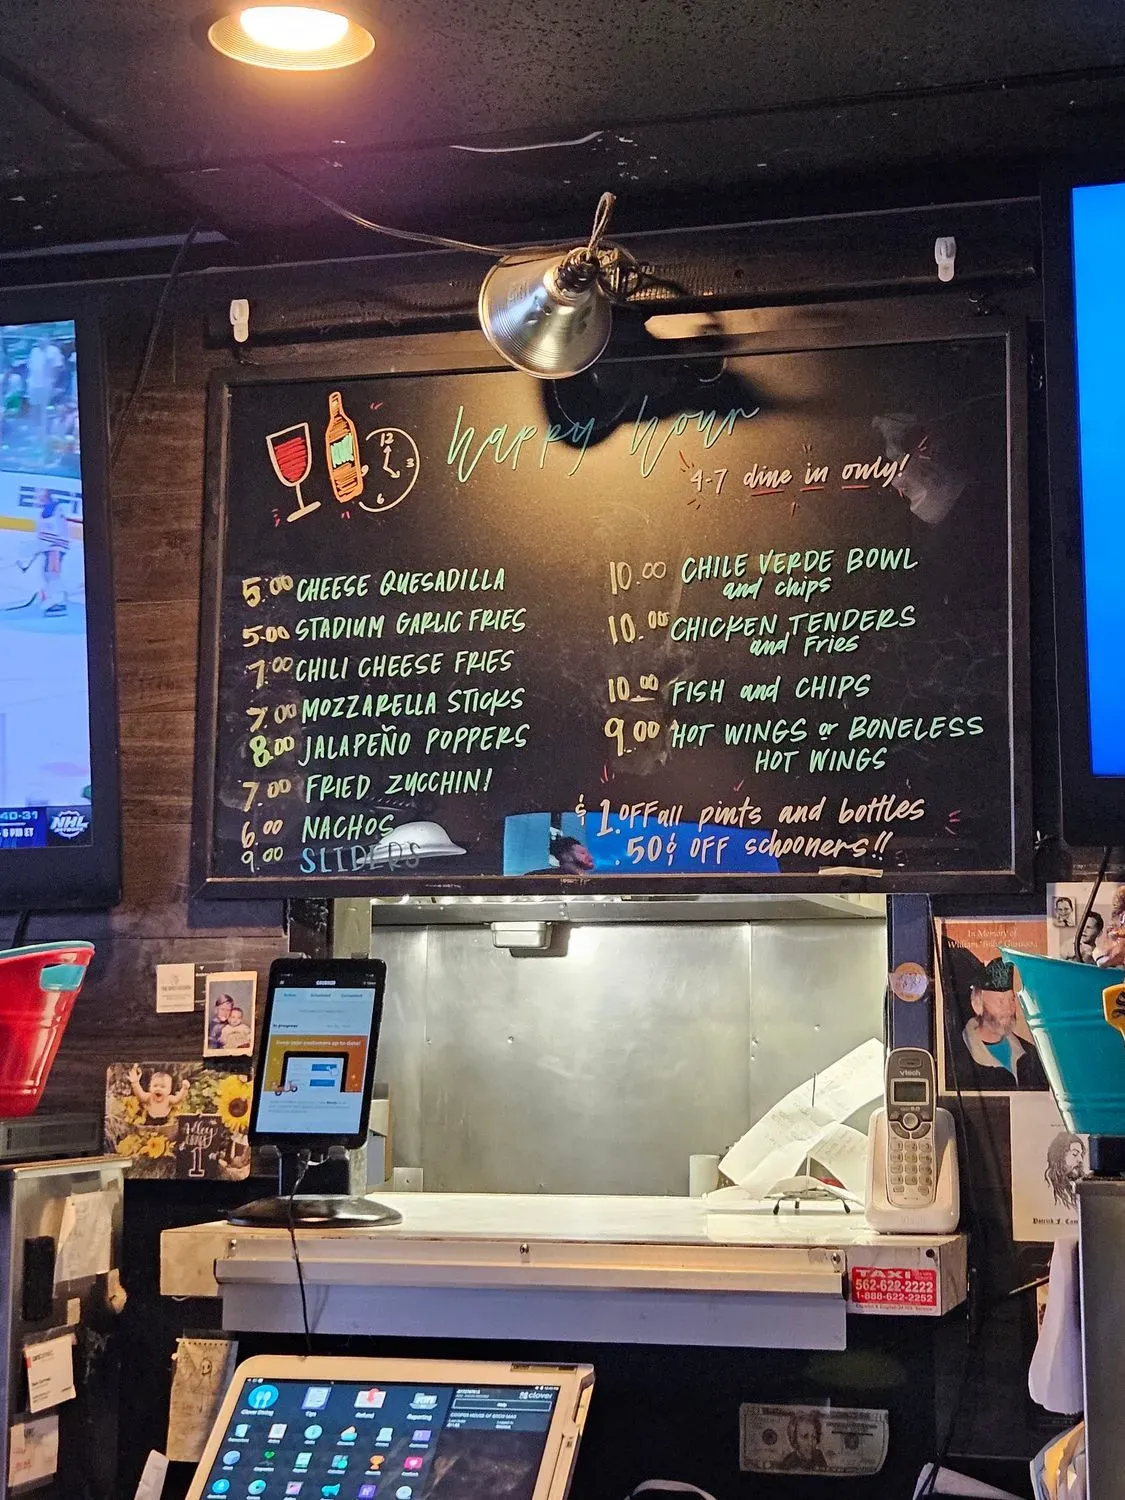 happy hour
4-7 dine in only!
12
3
6
9
5.00 CHEESE QUESADILLA
5.00 STADIUM GARLIC FRIES
7.00 CHILI CHEESE FRIES
7.00 MOZZARELLA STICKS
8.00 JALAPEÑO POPPERS
7.00 FRIED ZUCCHINI
6.00 NACHOS
9.00 SLIDERS
10.00 CHILE VERDE BOWL
and chips
10.00 CHICKEN TENDERS
and Fries
10.00 FISH and CHIPS
9.00 HOT WINGS or BONELESS
HOT WINGS
$1. OFF all pints and bottles
.50¢ OFF schooners!!
ESPN
40-31
NHL
NETWORK
In Memory of
vtech
TAXI
562-622-2222
1-888-622-2252
Keep your customers up to date!
Clover Dining
Tips
Refund
Reporting
clover